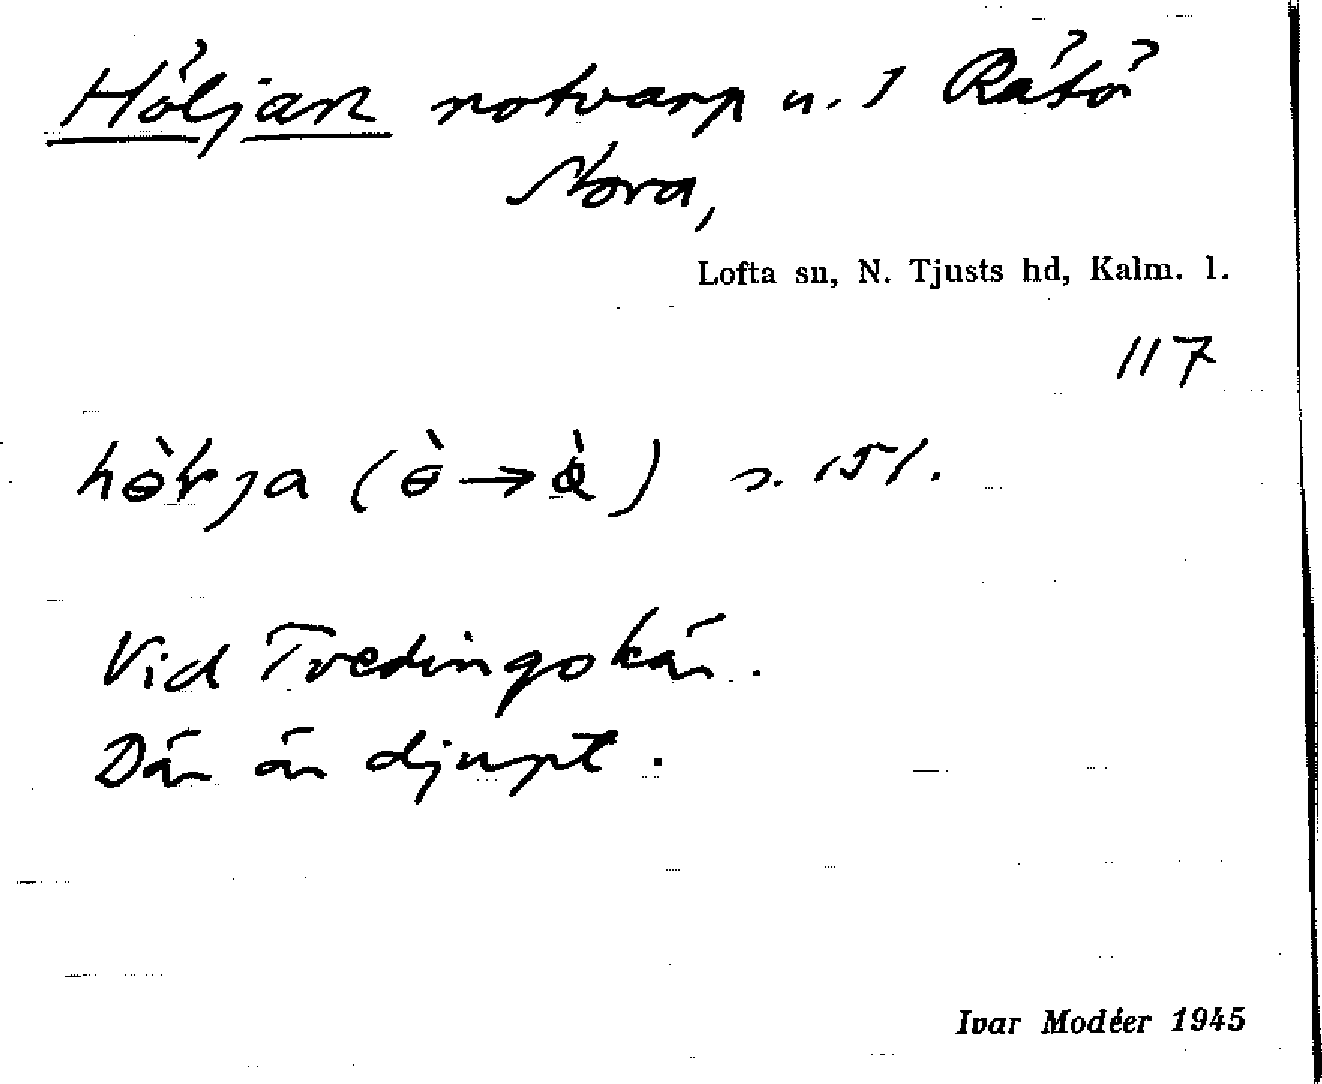 Höljan notvarp u. 1 Rätö
Norra,
Lofta sn, N. Tjusts hd, Kalm. l.
117
s. 151.
Vid Tvedingskär.
Där är djupt.
Ivar Modéer 1945